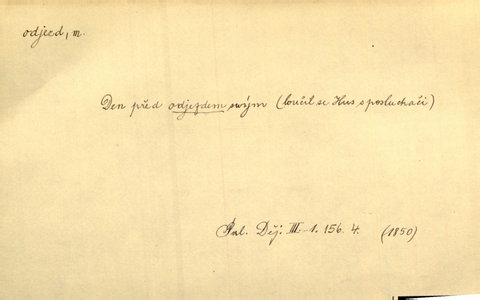 odjezd, m.
Den před odjezdem svým (loučil se Hus s posluchači)
Pal. Děj. III-1. 156. 4. (1850)